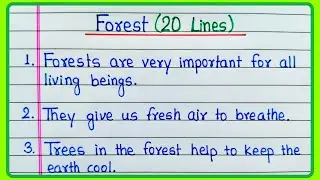 Forest (20 Lines)
1. Forests are very important for all
living beings.
2. They give us fresh air to breathe.
3. Trees in the forest help to keep the
earth cool.